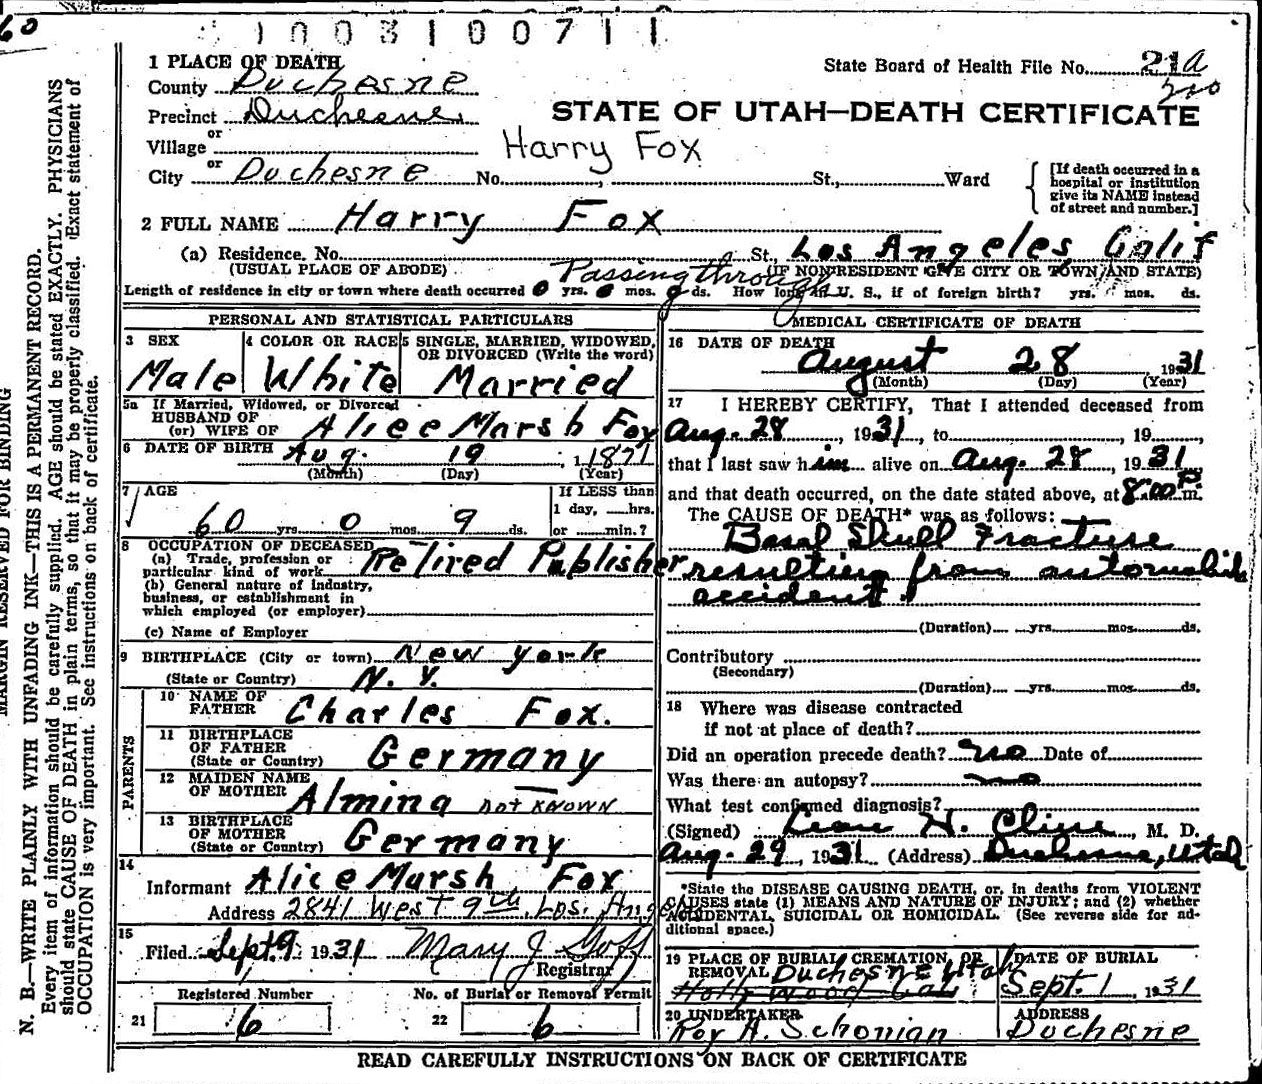 60
1003100711
1 PLACE OF DEATH
County Duchesne
Precinct Duchesne
or
Village
or
City Duchesne No. , St., Ward
State Board of Health File No. 21a
STATE OF UTAH—DEATH CERTIFICATE
Harry Fox
[If death occurred in a
hospital or institution
give its NAME instead
of street and number.]
2 FULL NAME Harry Fox
(a) Residence. No. St., Los Angeles, Calif
(USUAL PLACE OF ABODE) (IF NONRESIDENT GIVE CITY OR TOWN AND STATE)
Passing through
Length of residence in city or town where death occurred 0 yrs. 0 mos. 0 ds. How long in U. S., if of foreign birth? yrs. mos. ds.
PERSONAL AND STATISTICAL PARTICULARS
3 SEX 4 COLOR OR RACE 5 SINGLE, MARRIED, WIDOWED,
OR DIVORCED (Write the word)
Male White Married
5a If Married, Widowed, or Divorced
HUSBAND OF
(or) WIFE OF Alice Marsh Fox
6 DATE OF BIRTH Aug. 19 , 1871
(Month) (Day) (Year)
7 AGE
60 yrs. 0 mos. 9 ds.
If LESS than
1 day, hrs.
or min.?
8 OCCUPATION OF DECEASED
(a) Trade, profession or
particular kind of work Retired Publisher
(b) General nature of industry,
business, or establishment in
which employed (or employer)
(c) Name of Employer
9 BIRTHPLACE (City or town) New York
(State or Country) N. Y.
PARENTS
10 NAME OF
FATHER Charles Fox.
11 BIRTHPLACE
OF FATHER
(State or Country) Germany
12 MAIDEN NAME
OF MOTHER Almina NOT KNOWN
13 BIRTHPLACE
OF MOTHER
(State or Country) Germany
14
Informant Alice Marsh Fox
Address 2841 West 9th, Los. Angeles
15
Filed Sept. 9 1931 Mary J Goff
Registrar
Registered Number No. of Burial or Removal Permit
21 6 22 6
MEDICAL CERTIFICATE OF DEATH
16 DATE OF DEATH
August 28 1931
(Month) (Day) (Year)
17 I HEREBY CERTIFY, That I attended deceased from
Aug. 28 , 1931, to , 19 ,
that I last saw him alive on Aug. 28 , 1931
and that death occurred, on the date stated above, at 8:00 P. m.
The CAUSE OF DEATH* was as follows:
Basal Skull Fracture
resulting from automobile
accident.
(Duration) yrs. mos. ds.
Contributory
(Secondary)
(Duration) yrs. mos. ds.
18 Where was disease contracted
if not at place of death?
Did an operation precede death? no Date of
Was there an autopsy? no
What test confirmed diagnosis?
(Signed) Leon H. Cline , M. D.
Aug. 29, 1931 (Address) Duchesne, Utah
*State the DISEASE CAUSING DEATH, or, in deaths from VIOLENT
CAUSES state (1) MEANS AND NATURE OF INJURY; and (2) whether
ACCIDENTAL, SUICIDAL OR HOMICIDAL. (See reverse side for ad-
ditional space.)
19 PLACE OF BURIAL, CREMATION, OR
REMOVAL Duchesne Utah
Hollywood Cal.
DATE OF BURIAL
Sept. 1, 1931
20 UNDERTAKER
Roy A. Schonian
ADDRESS
Duchesne
READ CAREFULLY INSTRUCTIONS ON BACK OF CERTIFICATE
MARGIN RESERVED FOR BINDING
N. B.—WRITE PLAINLY WITH UNFADING INK—THIS IS A PERMANENT RECORD.
Every item of information should be carefully supplied. AGE should be stated EXACTLY. PHYSICIANS
should state CAUSE OF DEATH in plain terms, so that it may be properly classified. Exact statement of
OCCUPATION is very important. See instructions on back of certificate.